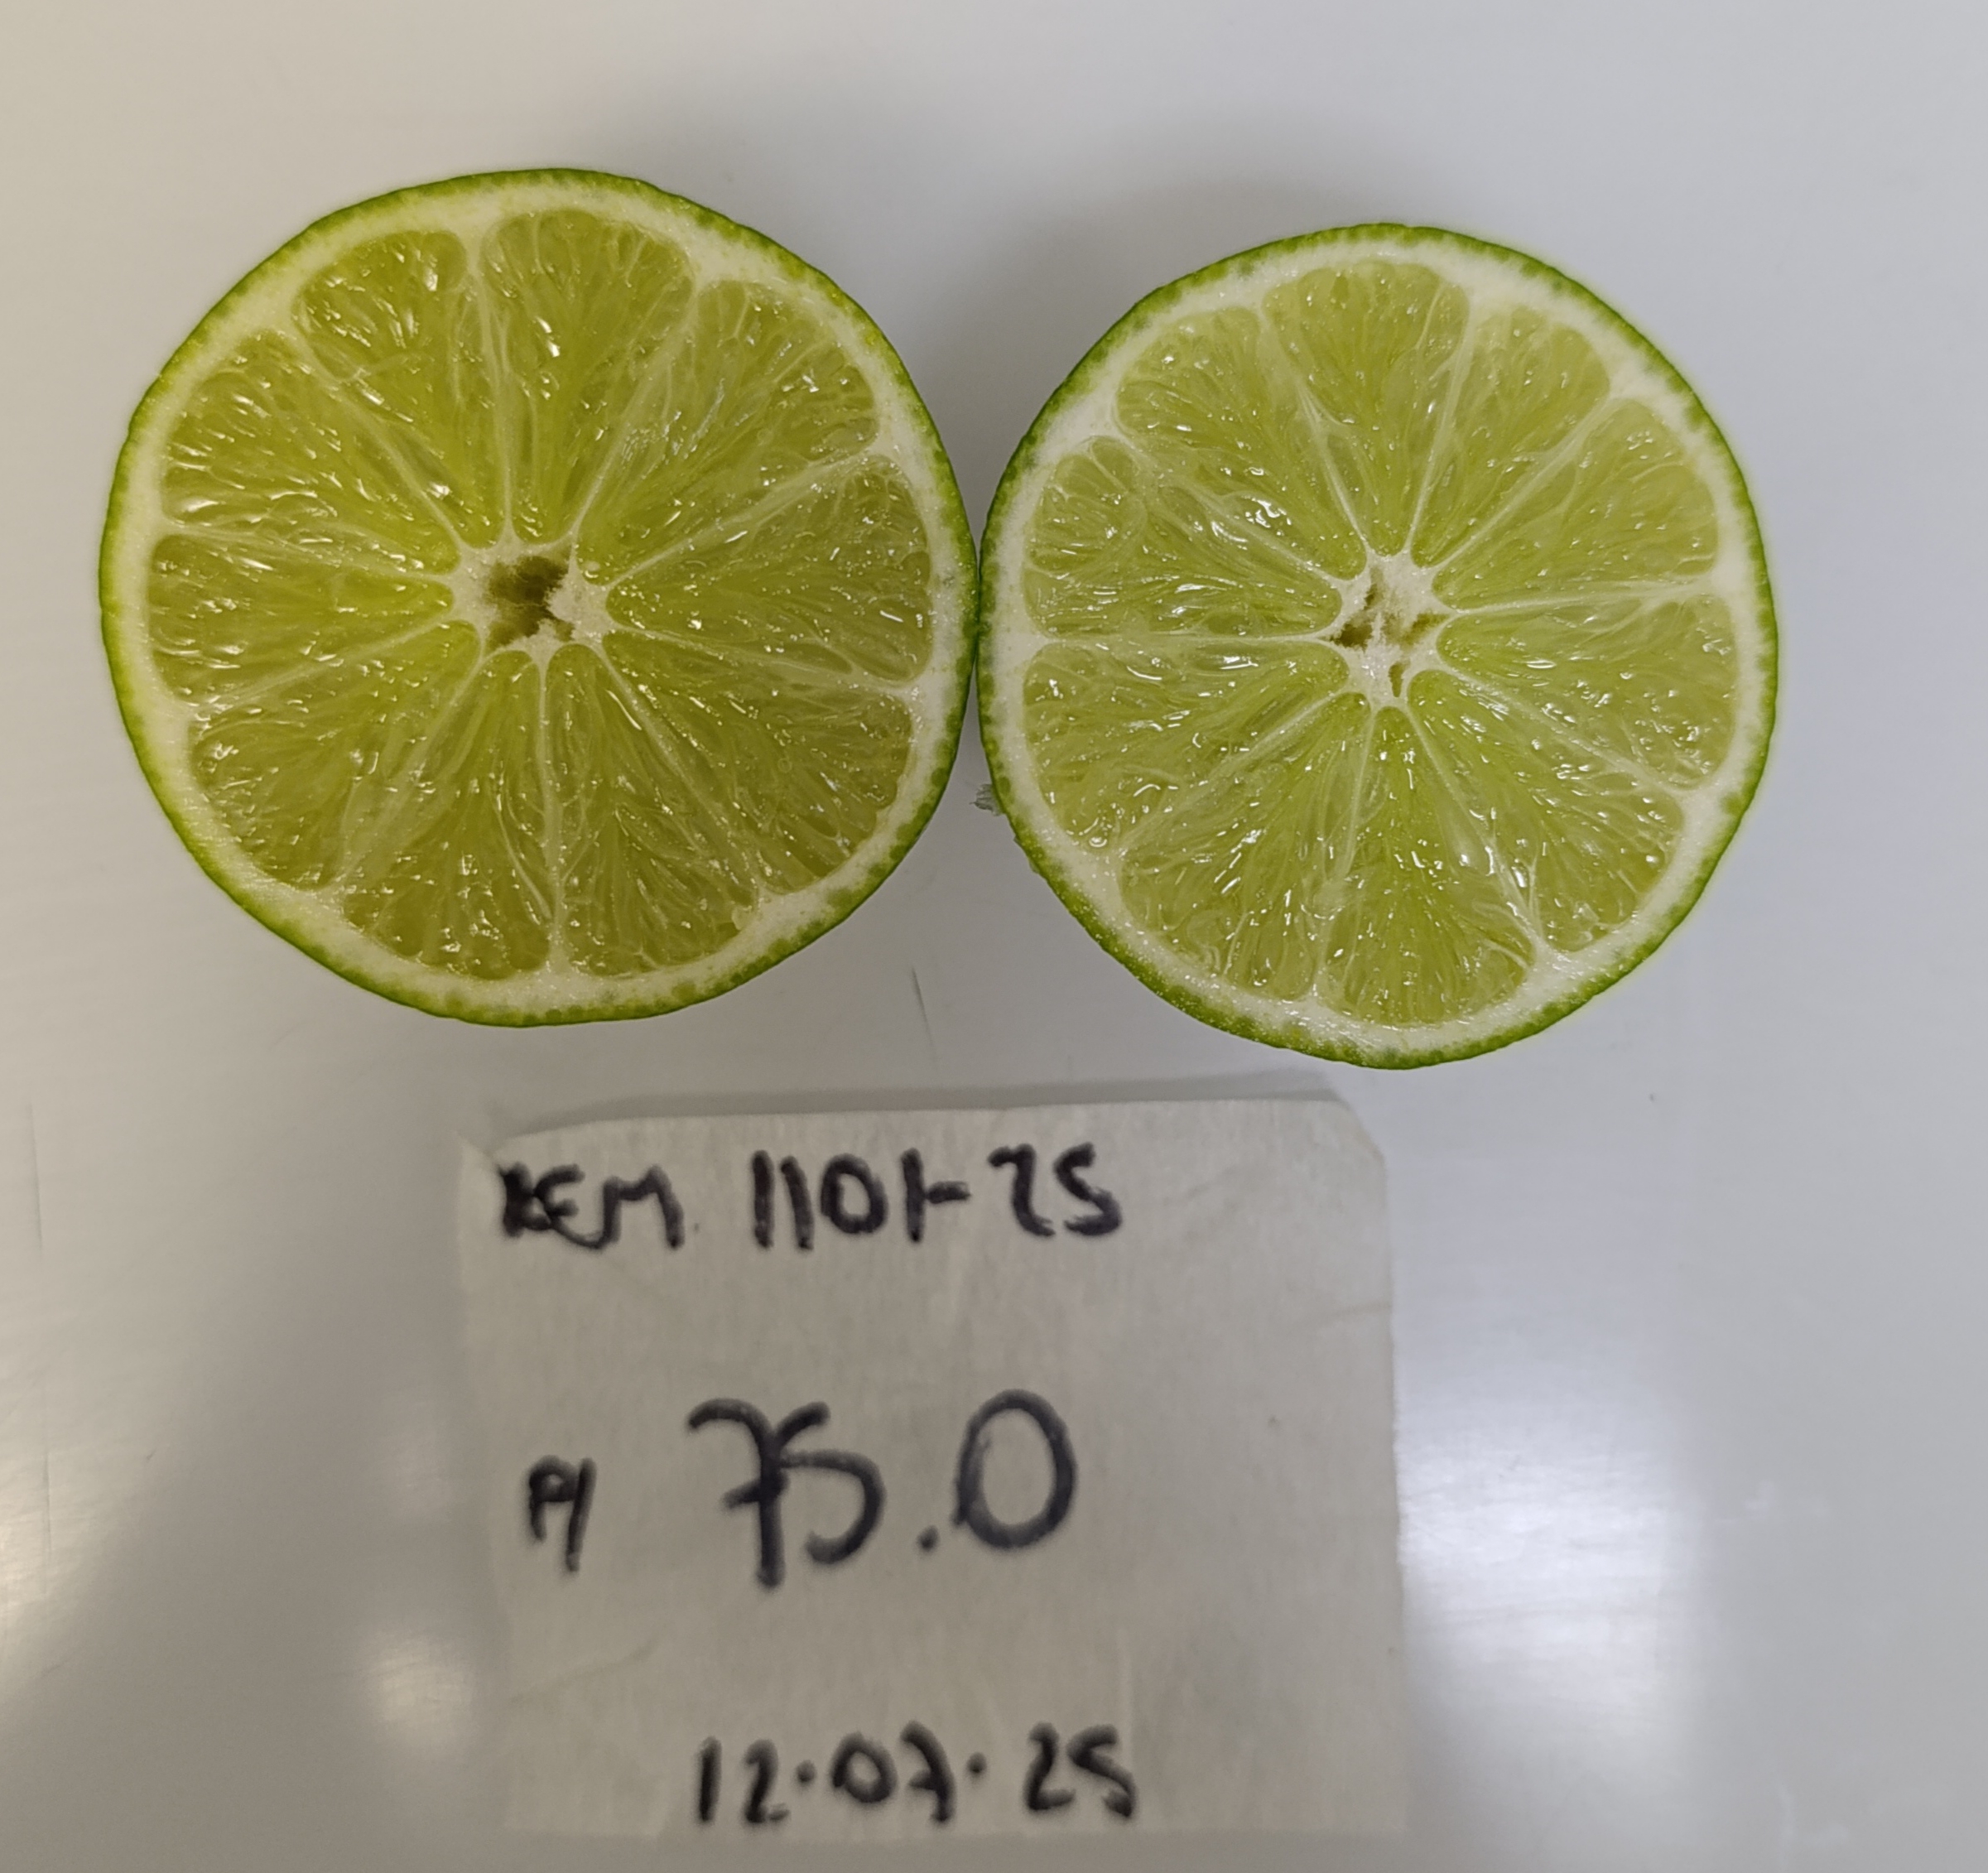 REM 1101-25
A 75.0
12.07.25